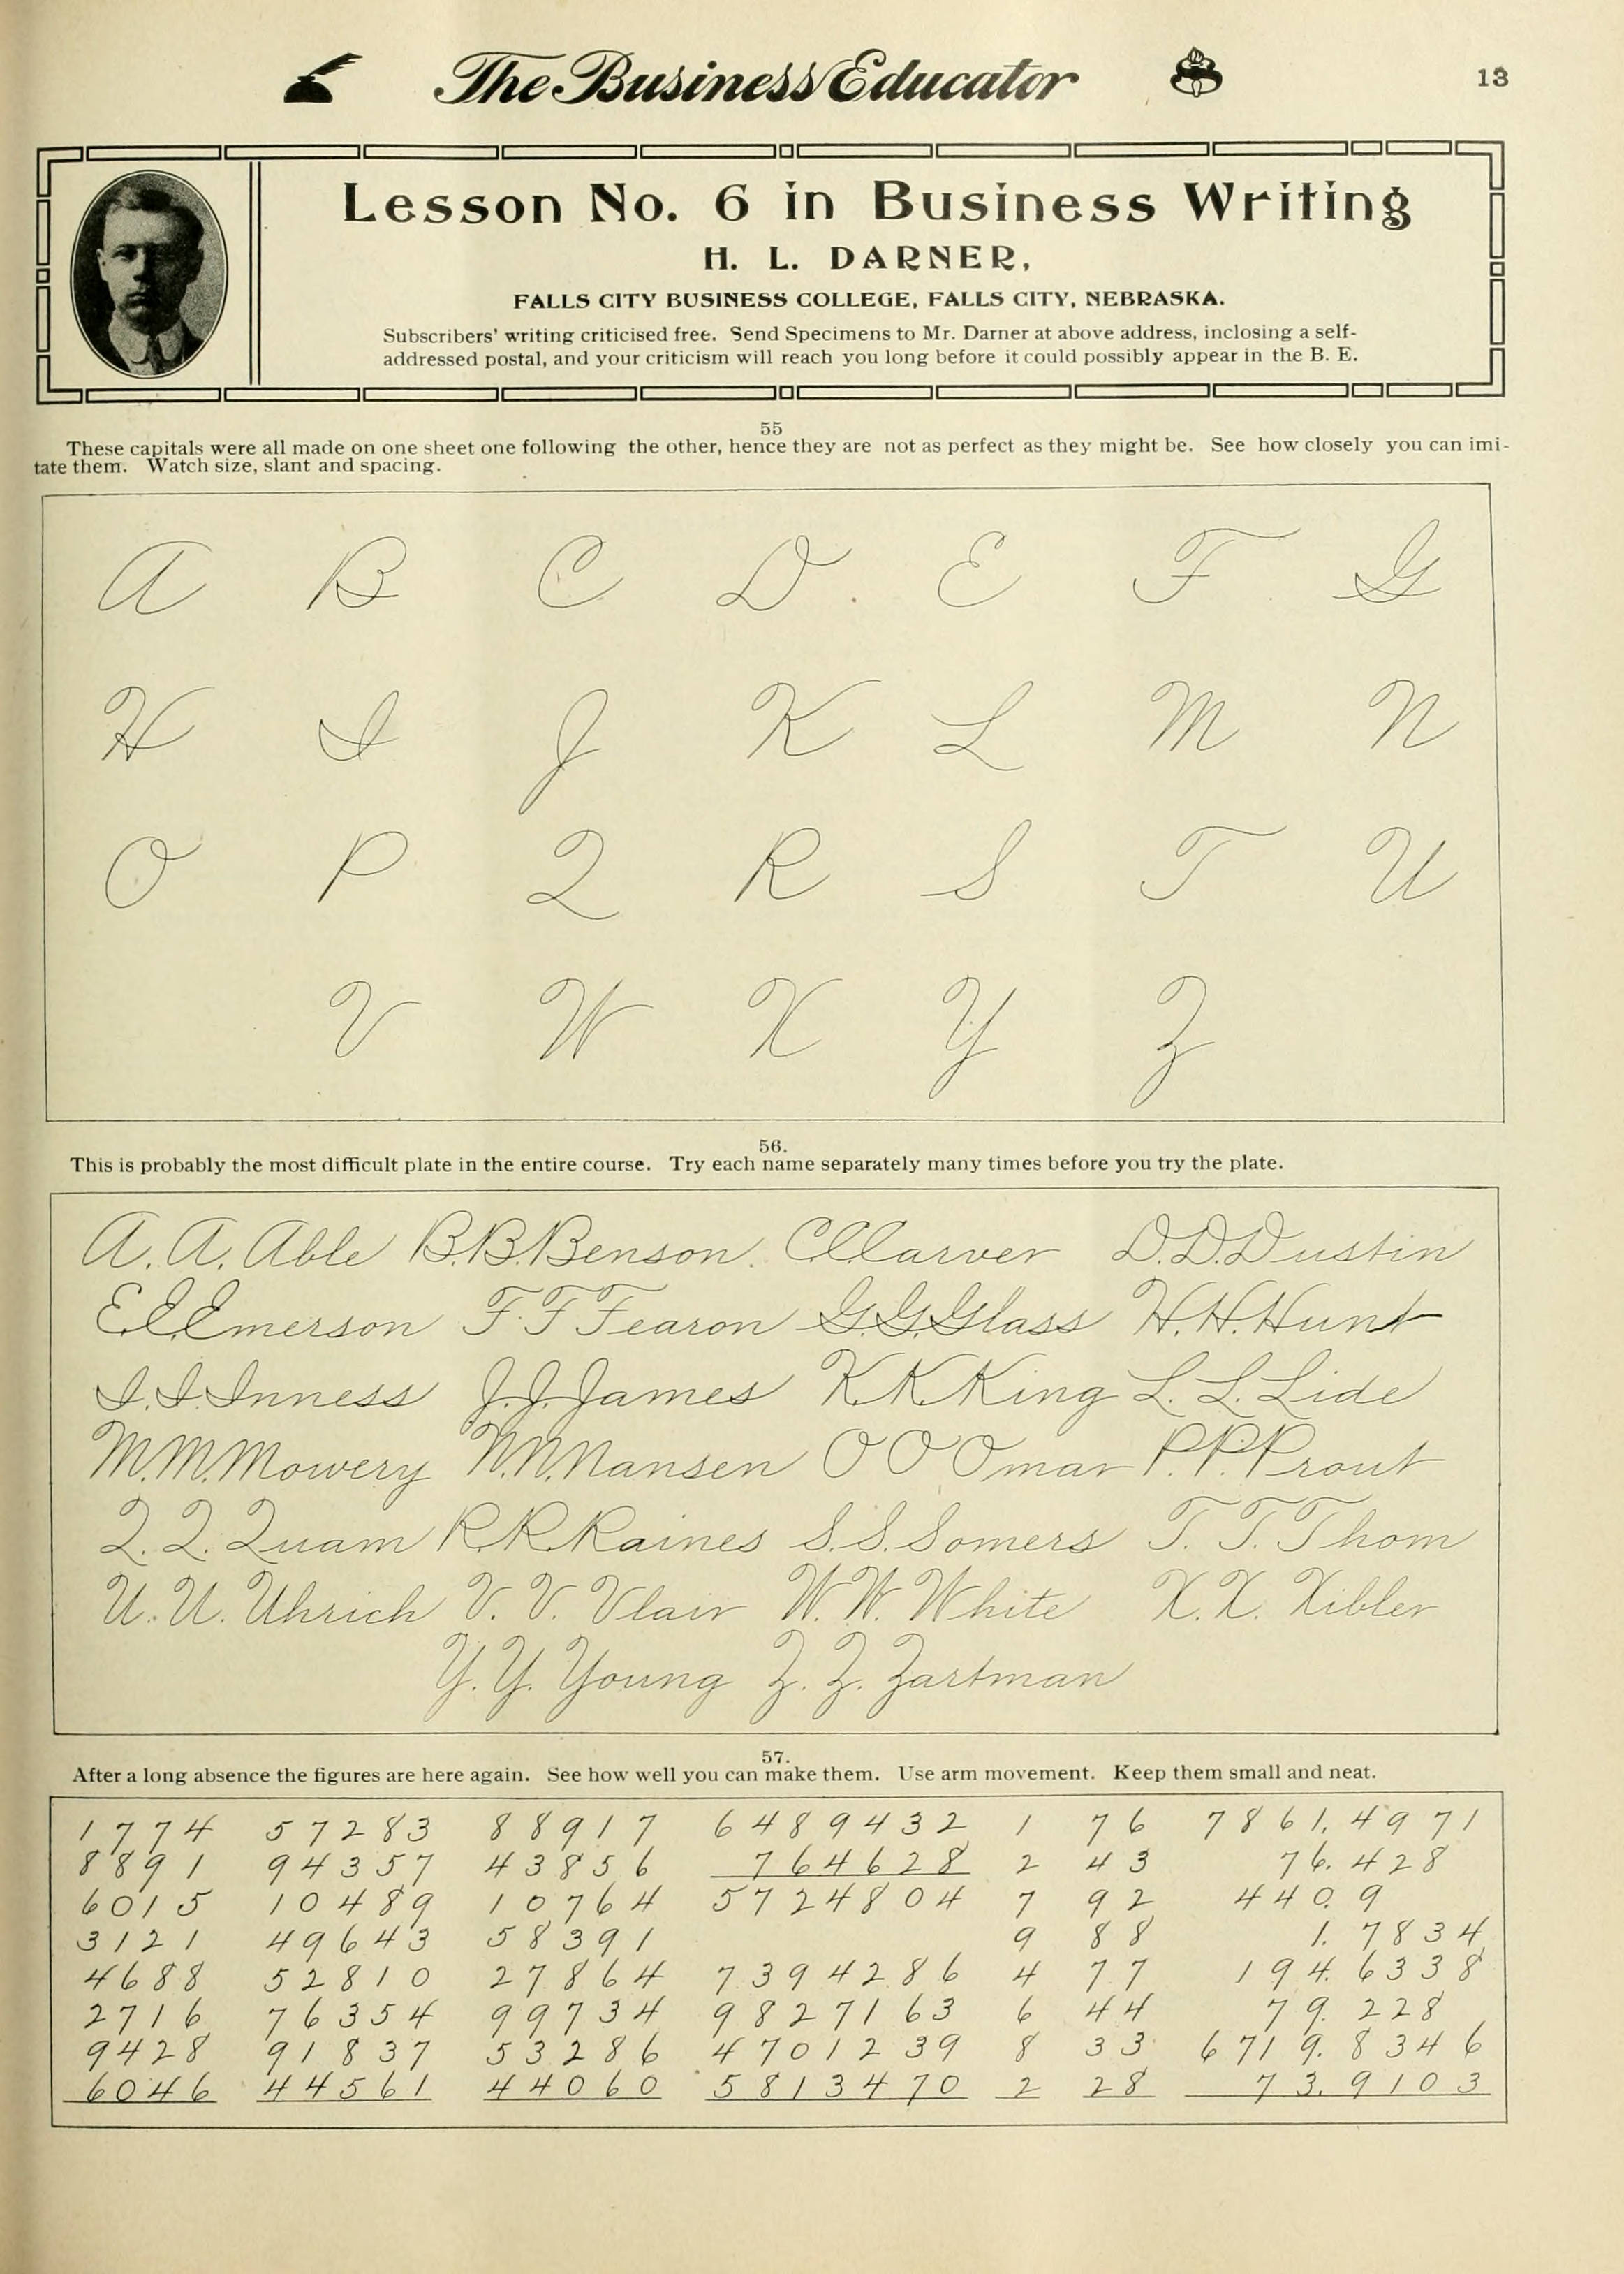 The Business Educator 13
Lesson No. 6 in Business Writing
H. L. DARNER,
FALLS CITY BUSINESS COLLEGE, FALLS CITY, NEBRASKA.
Subscribers' writing criticised free. Send Specimens to Mr. Darner at above address, inclosing a self-
addressed postal, and your criticism will reach you long before it could possibly appear in the B. E.
55
These capitals were all made on one sheet one following the other, hence they are not as perfect as they might be. See how closely you can imi-
tate them. Watch size, slant and spacing.
A B C D E F G
H I J K L M N
O P Q R S T U
V W X Y Z
56.
This is probably the most difficult plate in the entire course. Try each name separately many times before you try the plate.
A. A. Able B. B. Benson. C. C. Carver D. D. Dustin
E. E. Emerson F. F. Fearon G. G. Glass H. H. Hunt
I. I. Inness J. J. James K. K. King L. L. Lide
M. M. Mowery N. N. Nansen O O Omar P. P. Prout
Q. Q. Quam R. R. Raines S. S. Somers T. T. Thom
U. U. Uhrich V. V. Vlair W. W. White X. X. Xibler
Y. Y. Young Z. Z. Zartman
57.
After a long absence the figures are here again. See how well you can make them. Use arm movement. Keep them small and neat.
1774 57283 88917 6489432 1 76 7861.4971
8891 94357 43856 764628 2 43 76.428
6015 10489 10764 5724804 7 92 440.9
3121 49643 58391 9 88 1.7834
4688 52810 27864 7394286 4 77 194.6338
2716 76354 99734 9827163 6 44 79.228
9428 91837 53286 4701239 8 33 6719.8346
6046 44561 44060 5813470 2 28 73.9103